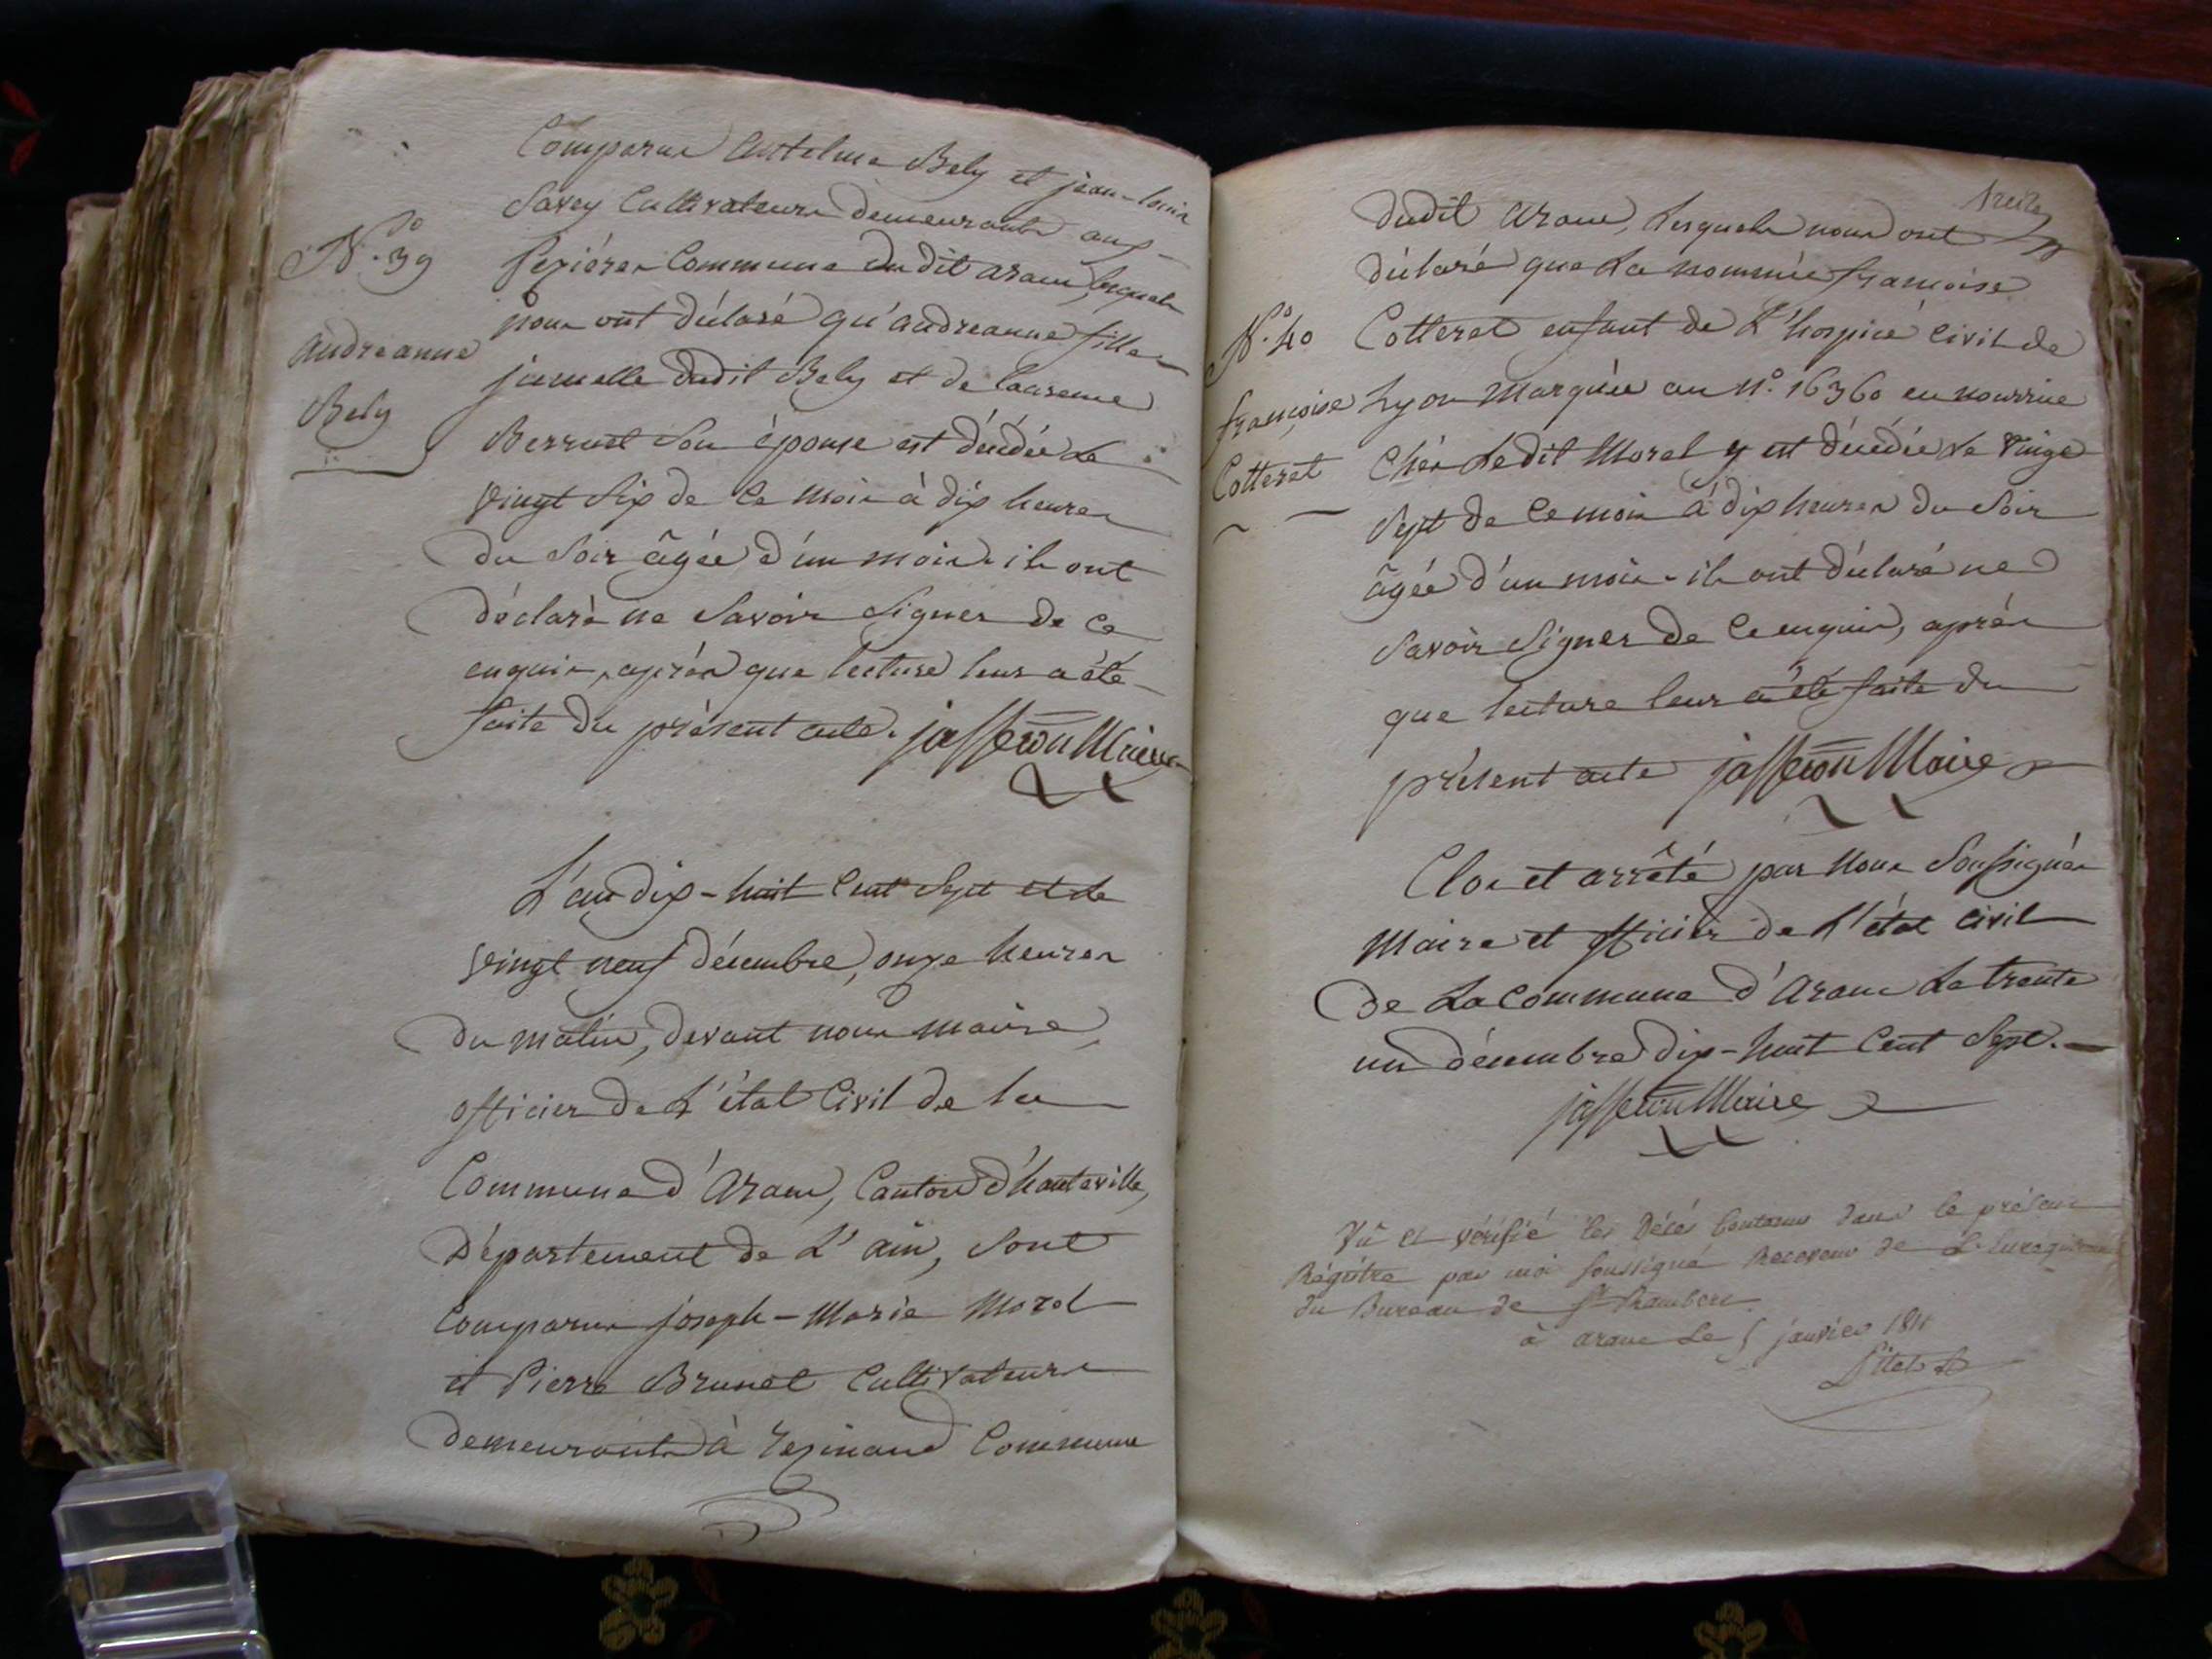 Comparus Antelme Bely et jean-louis
Savey Cultivateurs demeurants aux
Seziéres Commune du dit aranc, lesquels
nous ont déclaré qu'andreanne fille
jumelle dudit Bely et de
Berruet Son épouse est décédée Le
vingt Six de Ce mois à dix heures
du Soir âgée d'un mois. ils ont
déclaré ne Savoir Signer de Ce
enquis, après que lecture leur a été
faite du présent acte. jasseron Maire
N.º 39
andreanne
Bely
L'an dix-huit Cent Sept et le
vingt neuf décembre, onze heures
du matin, devant nous maire,
officier de L'état Civil de la
Commune d'Aranc, Canton d'hauteville,
Département de L'ain, Sont
Comparus joseph-Marie Morel
et Pierre Brunet Cultivateurs
demeurants à Rezinand Commune
treize
dudit Aranc, Lesquels nous ont
déclaré que La nommée françoise
Cotteret enfant de L'hospice Civil de
Lyon Marquée au N.º 16360 en nourrice
Chés Ledit Morel y est décédée Le vingt
Sept de Ce mois à dix heures du Soir
âgée d'un mois. ils ont déclaré ne
Savoir Signer de Ce enquis, après
que lecture leur a été faite du
présent acte jasseron Maire
N.º 40
françoise
Cotteret
Clos et arrêté par Nous Soussignés
Maire et officier de L'état Civil
de La Commune d'Aranc Le trente
un décembre dix-huit Cent Sept.
jasseron Maire
Vu et vérifié les Décés Contenus dans le présent
Régistre par moi soussigné Receveur de L'Enregistrement
du Bureau de St Rambert
à aranc Le 5 janvier 1811